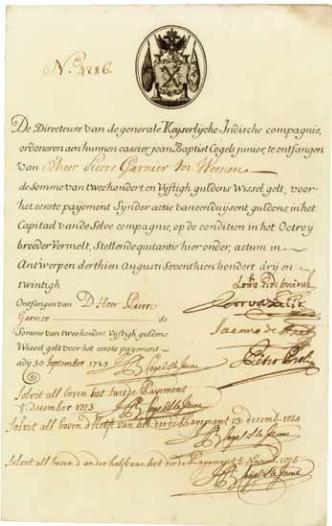 N.º 4286.
De Directeurs van de generale Keyserlycke Indische compagnie,
ordoneren aen hunnen cassier joan Baptist Cogels junior, te ontfangen
van D'heer Pierre Garnier tot Weenen
de Somme van tweehondert en Vyftigh guldens Wissel gelt, voor
het eerste payement Synder actie van een duysent guldens, in het
Capitael van de Selve compagnie, op de conditien in het Octroy
breeder Vermelt, Stellende quitantie hier onder, actum in
Antwerpen derthien Augusti Seventhien hondert dry en
twintigh
Ontfangen van D'Heer Pierre
Garnier de
Somme van tweehondert Vyftigh guldens
Wissel gelt voor het eerste payement
ady 30. September 1723
Jacomo de
Pietro Proli
JB Cogels Le Jeune
Solvit alsboven het twede Payement
5. december 1723
JB Cogels Le Jeune
Solvit als boven d'helft van het derde Payement 13 decemb 1724
JB Cogels Le Jeune
Solvit als boven d'ander helft van het derde Payement 5 1725
JB Cogels Le Jeune